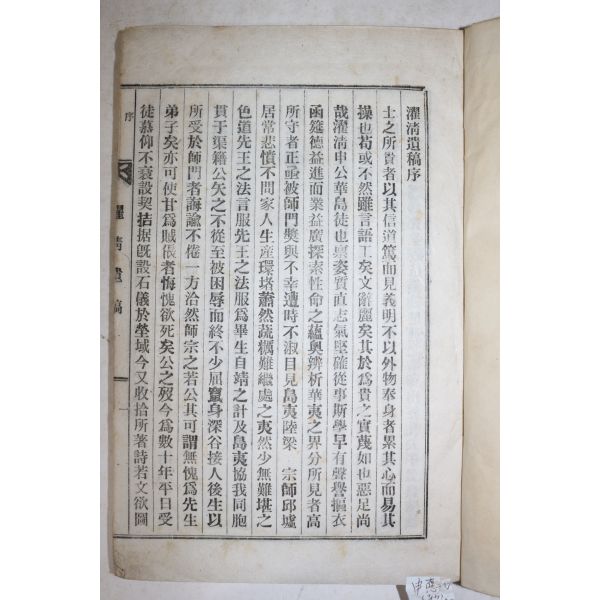 濯淸遺稿序
士之所貴者以其信道篤而見義明不以外物奉身者累其心而易其
操也苟或不然雖言語工矣文辭麗矣其於爲貴之實蔑如也惡足尚
哉濯淸申公華島徒也禀姿質直志氣堅確從事斯學早有聲譽摳衣
函筵德益進而業益廣探索性命之蘊奧辨析華夷之界分所見者高
所守者正亟被師門奬與不幸遭時不淑目見島夷陸梁 宗師邱墟
居常悲憤不問家人生産環堵蕭然蔬糲難繼處之夷然少無難堪之
色道先王之法言服先王之法服爲畢生自靖之計及島夷協我同胞
貫于渠籍公矢之不從至被困辱而終不少屈竄身深谷接人後生以
所受於師門者誨諭不倦一方洽然師宗之若公其可謂無愧爲先生
弟子矣亦可使甘爲賊倀者悔愧欲死矣公之歿今爲數十年平日受
徒慕仰不衰設契拮据旣設石儀於塋域今又收拾所著詩若文欲圖
序
濯淸遺稿
一